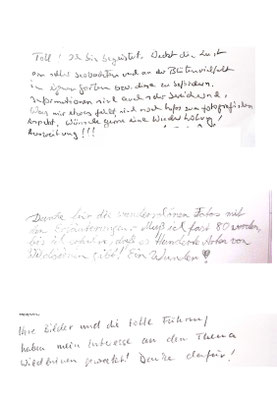 Toll! Ich bin begeistert. Weckt die Lust
am selbst beobachten und an der Blütenvielfalt
im eigenen Garten bzw. diese zu befördern.
Informationen sind auch sehr bereichernd,
Was mir etwas fehlt sind noch Infos zum fotografischen
Aspekt, wünsche gerne eine Wiederholung/
Ausweitung!!!
Danke für die wunderschönen Fotos mit
den Erläuterungen. Muß ich fast 80 werden,
bis ich erfahre, daß es Hunderte Arten von
Wildbienen gibt! Ein Wunder!
Ihre Bilder und die tolle Führung
haben mein Interesse an dem Thema
Wildbienen geweckt! Danke dafür!